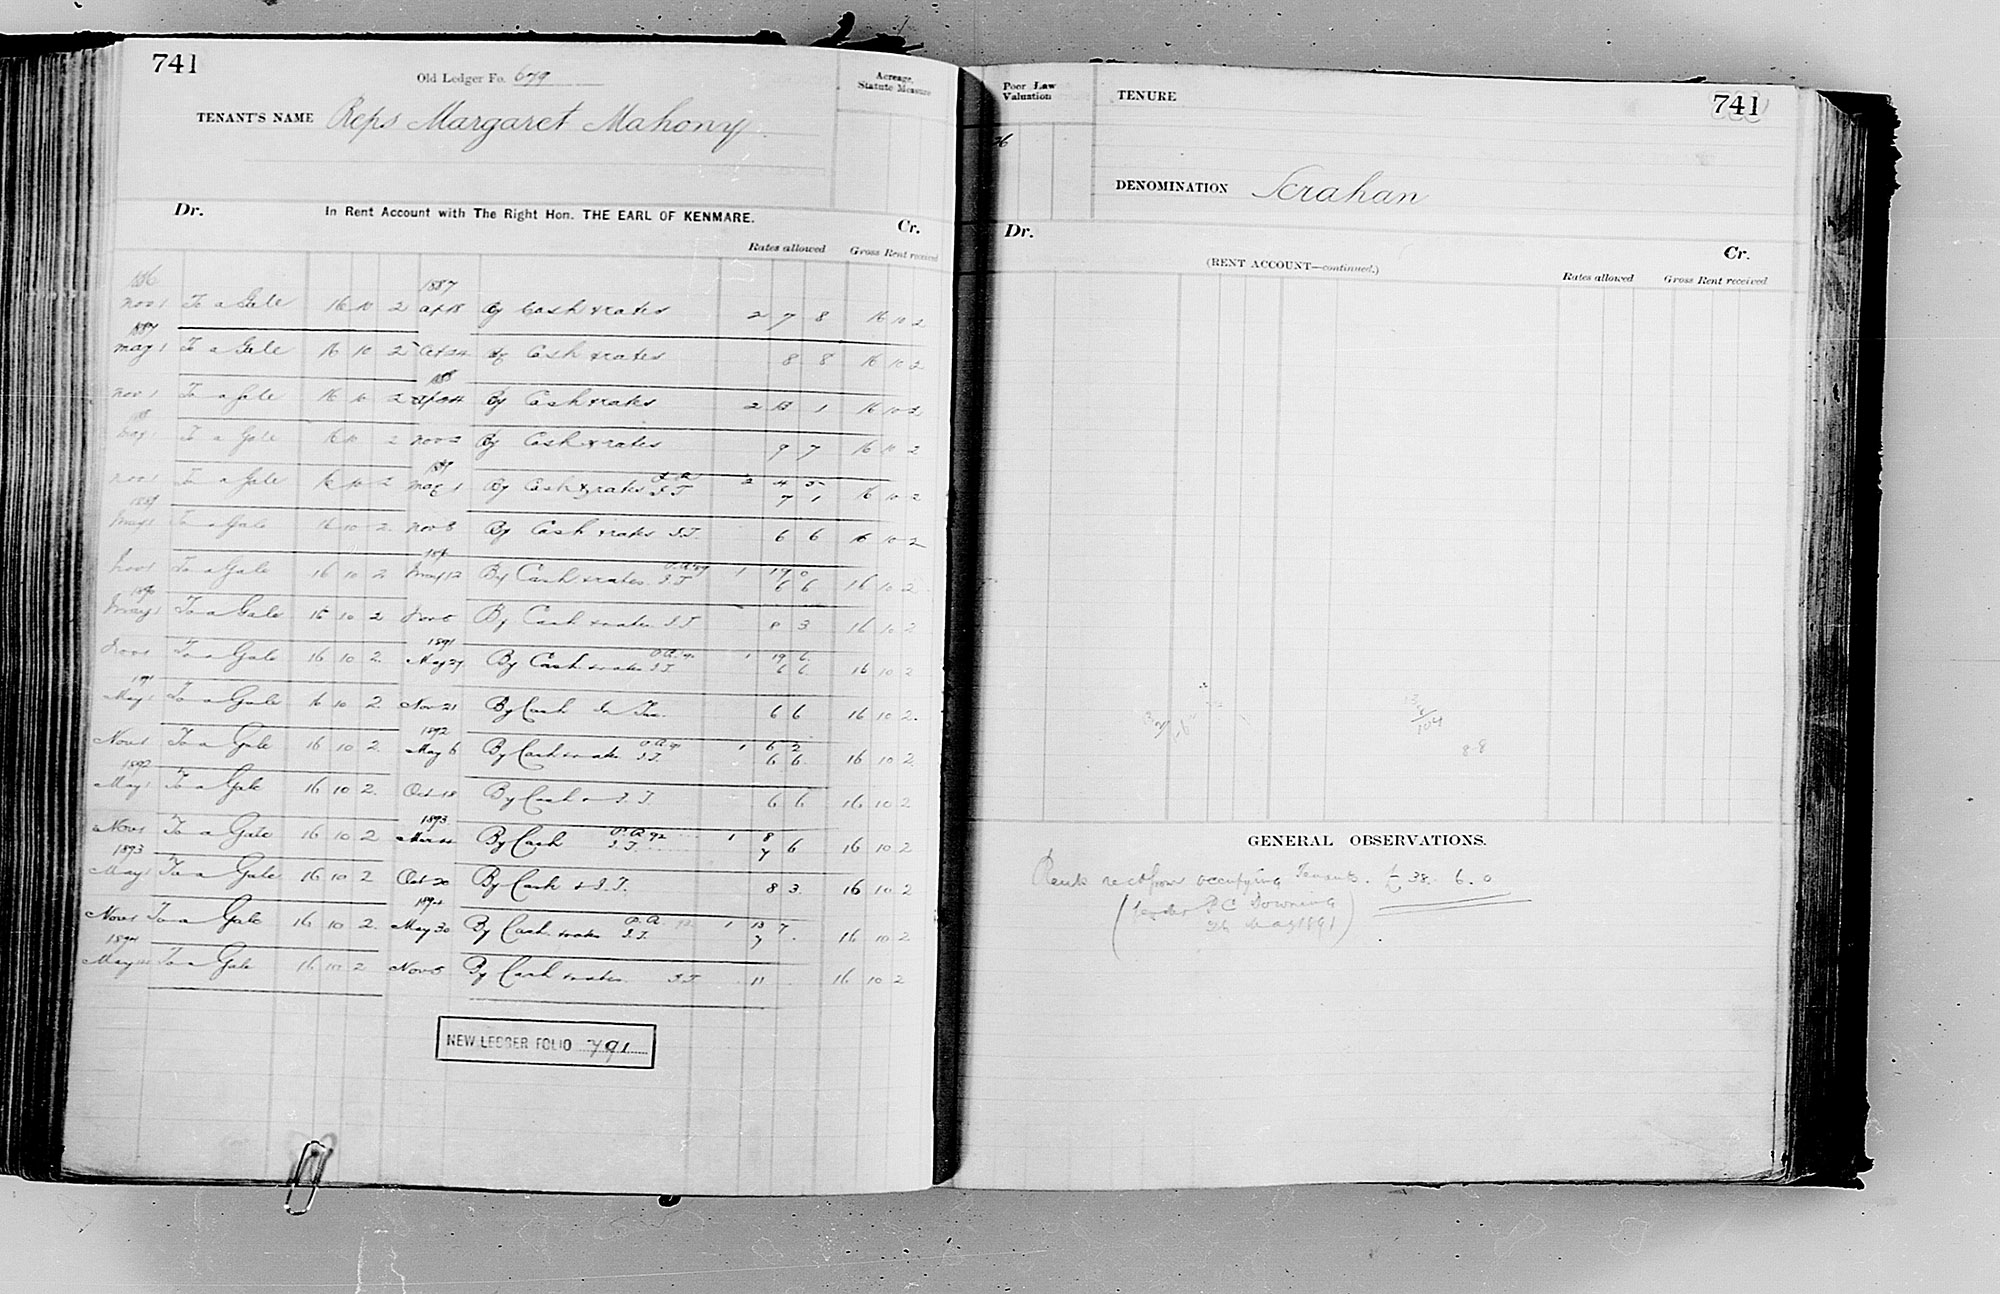 741
Old Ledger Fo. 679
Acreage, Statute Measure
TENANT'S NAME Reps Margaret Mahony
Dr. In Rent Account with The Right Hon. THE EARL OF KENMARE. Cr.
Rates allowed Gross Rent received
1886 1887
Nov 1 To a Gale 16 10 2 Ap 18 By Cash & rates 2 7 8 16 10 2
1887
May 1 To a Gale 16 10 2 Oct 24 By Cash & rates 8 8 16 10 2
1888
Nov 1 To a Gale 16 10 2 By Cash & rates 2 13 1 16 10 2
88
May 1 To a Gale 16 10 2 Nov 2 By Cash & rates 9 7 16 10 2
1889
Nov 1 To a Gale 16 10 2 May 1 By Cash & rates I.T 2 4 5 16 10 2
7 1
1889
May 1 To a Gale 16 10 2 Nov 8 By Cash & rates I.T. 6 6 16 10 2
Nov 1 To a Gale 16 10 2 May 12 By Cash & rates P.R 89 1 19 0
I.T 6 6 16 10 2
1890
May 1 To a Gale 16 10 2 Nov 5 By Cash & rates I.T 8 3 16 10 2
1891
Nov 1 To a Gale 16 10 2 May 27 By Cash & rates P.R. 90 1 19 6
I.T. 6 6 16 10 2
1891
May 1 To a Gale 16 10 2 Nov 21 By Cash In Tax. 6 6 16 10 2
1892
Nov 1 To a Gale 16 10 2 May 6 By Cash & rates P.R. 91 1 6 2
I.T. 6 6 16 10 2
1892
May 1 To a Gale 16 10 2 Oct 18 By Cash & I.T. 6 6 16 10 2
1893
Nov 1 To a Gale 16 10 2 By Cash P.R. 92 1 8
I.T. 7 6 16 10 2
1893
May 1 To a Gale 16 10 2 Oct 20 By Cash & I.T. 8 3 16 10 2
1894
Nov 1 To a Gale 16 10 2 May 30 By Cash & rates P.R. 93 1 13 7
I.T. 7 16 10 2
1894
May 1 To a Gale 16 10 2 Nov 5 By Cash & rates I.T 11 16 10 2
NEW LEDGER FOLIO 791
Poor Law Valuation
TENURE
741
DENOMINATION Scrahan
Dr. (RENT ACCOUNT—continued.) Cr.
Rates allowed Gross Rent received
104
8-8
GENERAL OBSERVATIONS.
Rents rec from occupying Tenants. £38. 6. 0
(Under P C Downing
26 May 1891)